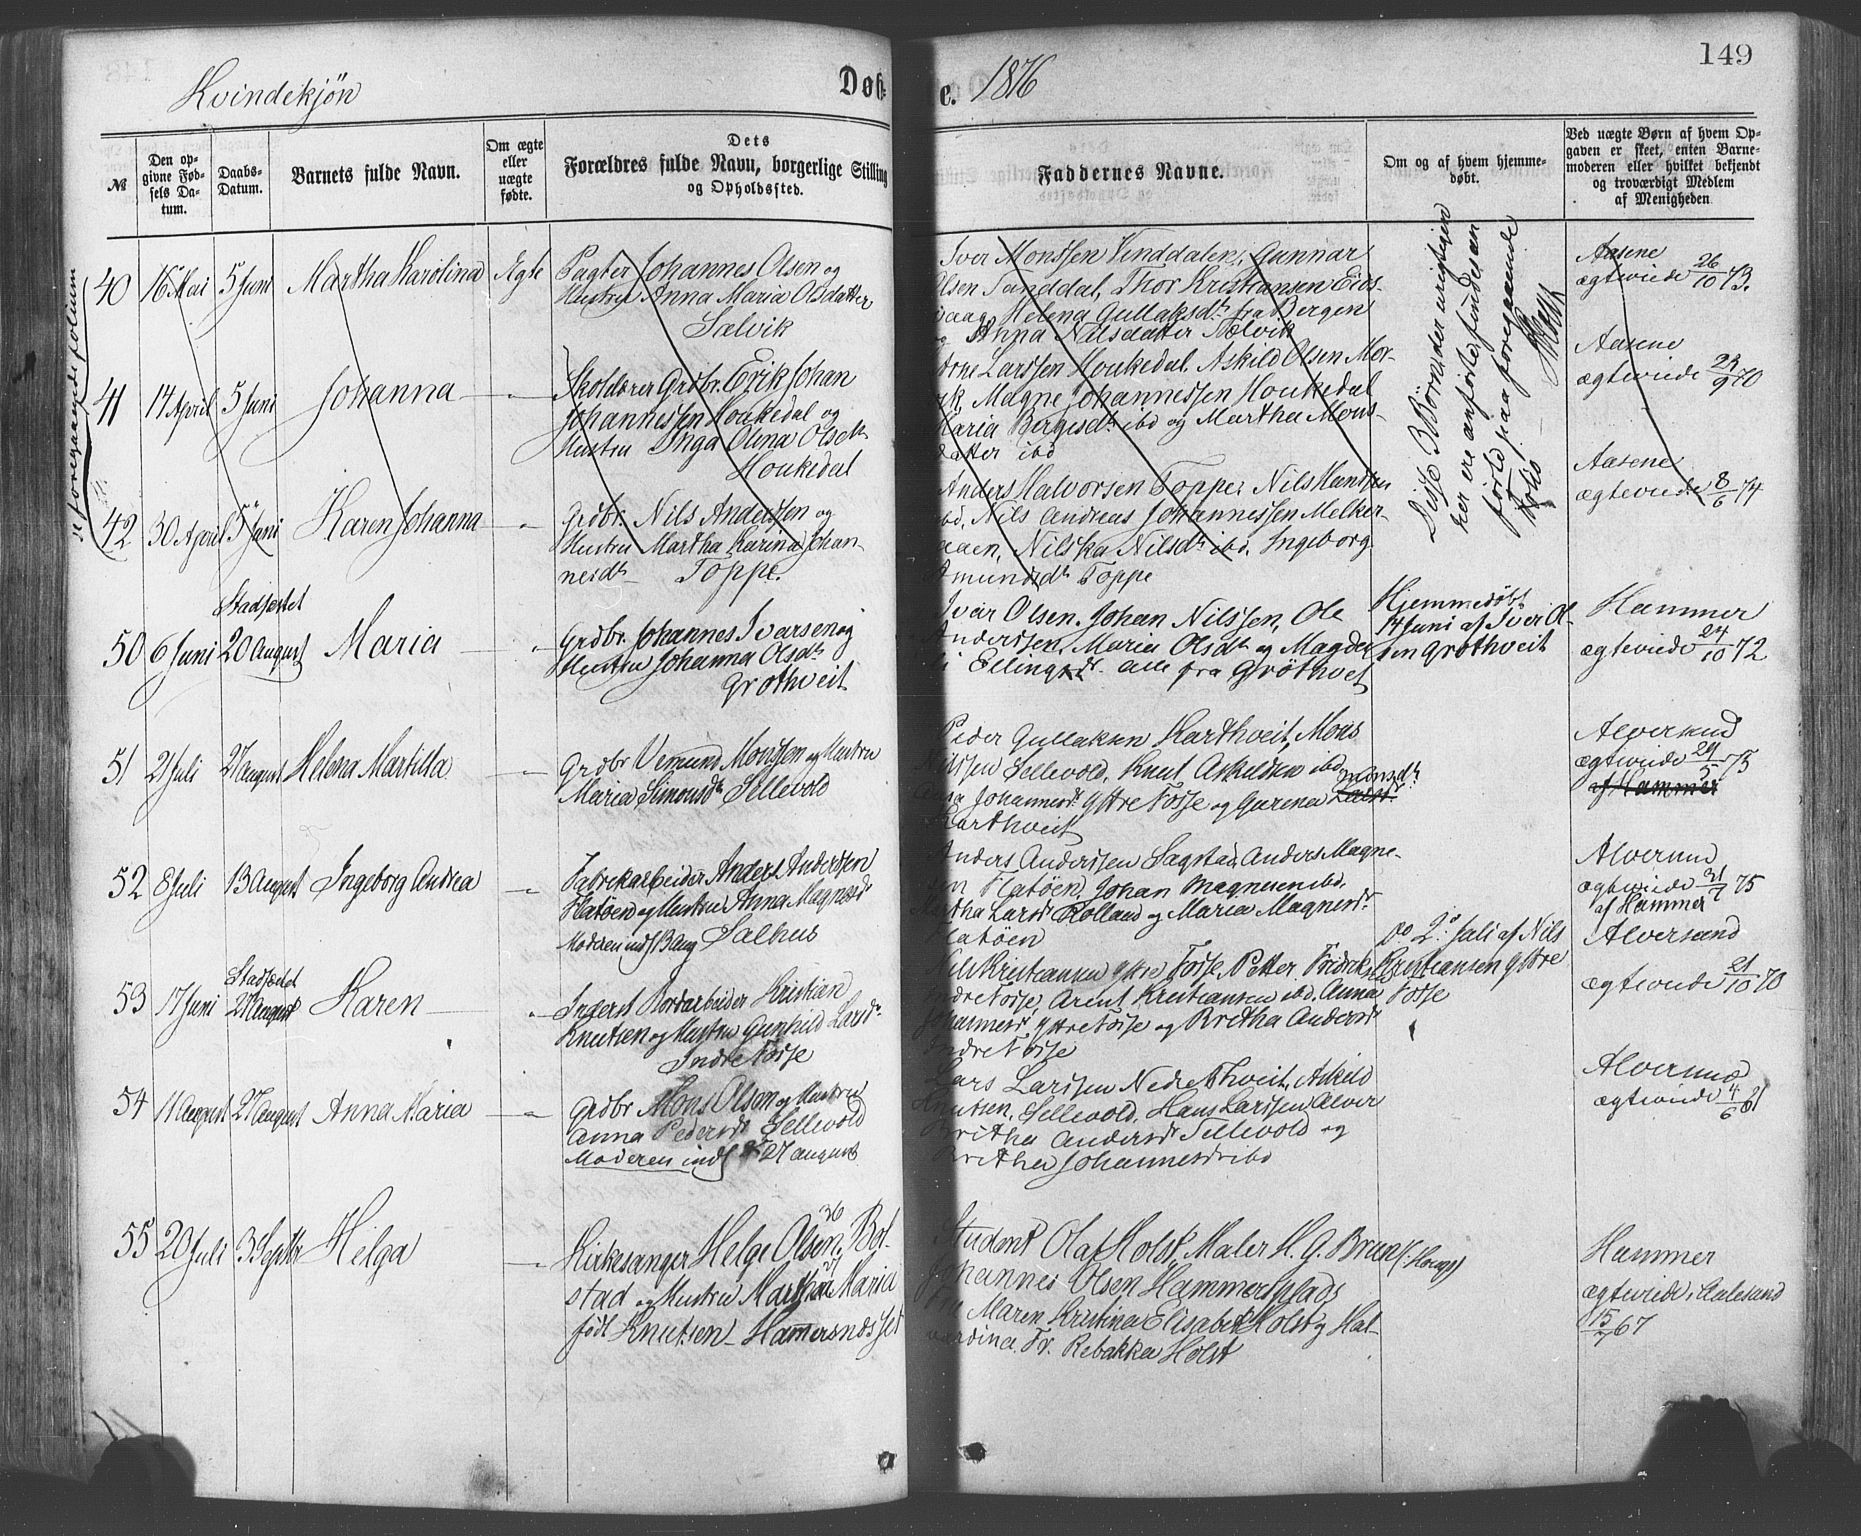 149
Hvindekjön
Døb- e. 1876
№
Den opgivne Fødsels Datum.
Daabs-Datum.
Barnets fulde Navn.
Om ægte eller uægte fødte.
Dets Forældres fulde Navn, borgerlige Stilling og Opholdssted.
Faddernes Navne.
Om og af hvem hjemmedøbt.
Ved uægte Børn af hvem Opgaven er skeet, enten Barnemoderen eller hvilket bekjendt og troværdigt Medlem af Menigheden
se foregaaende folium
40 16 Mai 5 Juni Martha Karolina Ægte
Pagter Johannes Olsen og
Hustru Anna Maria Olsdatter
Salvik
Iver Monssen Vinddalen, Gunnar
Olsen Tanddal, Thor Kristiansen Eids-
vaag, Helena Gullaksdr fra Bergen
og Anna Nilsdatter Salvik
Aasene
ægteviede 26/10 73.
41 14 April 5 Juni Johanna — „ —
Skolelærer Grdbr. Erik Johan
Johannessen Houkedal og
Hustru Inga Olina Olsdr
Houkedal
Arne Larssen Houkedal, Askild Olsen Mor-
vik Magne Johannessen Houkedal
Maria Børgesdr ibd og Martha Mons-
datter ibd
Aasene
ægteviede 29/9 70
42 30 April 5 Juni Karen Johanna — „ —
Grdbr. Nils Anderssen og
Hustru Martha Karina Johan-
nesdr Toppe.
Anders Halvorsen Toppe, Nils Hanssen
ibd, Nils Andreas Johannessen Melker-
aaen, Nilska Nilsdr ibd, Ingeborg
Amundsdr Toppe
Aasene
ægteviede 8/6 74
Disse 3 Börn der urigtigen
her ere anförte findes an
förte paa foregaaende
folio
50 6 Juni Stadfæstet 20 August Maria — „ —
Grdbr. Johannes Ivarsen og
Hustru Johanna Olsdr
Grothveit
Ivar Olsen, Johan Nilssen, Ole
Anderssen, Maria Olsdr og Magde-
li Ellingsdr. alle fra Grothveit
Hjemmedöbt
14 Juni af Iver Ol-
sen Grothveit
Hammer
ægteviede 24/10 72
51 2 Juli 27 August Helena Martilla — „ —
Grdbr Vemund Monssen og Hustru
Maria Simonsdr Sellevold
Peder Gullaksen Karthveit, Mons
Nilssen Sellevold, Knut Askildsen ibd
Anna Johannesdr Ystre Fosse og Gurena Monsdr
Karthveit
Alversund
ægteviede 24/5 75
af Hammer
52 8 Juli 13 August Ingeborg Andrea — „ —
Fabrikarbeider Anders Anderssen
Flatöen og Hustru Anna Magnesdr
Moderen indl 13 Aug Salhus
Anders Anderssen Sagstad, Anders Magne-
sen Flatöen, Johan Magnesen ibd,
Martha Larsdr Rolland og Maria Magnesdr
Flatöen
Alversund
ægteviede 31/7 75
af Hammer
53 17 Juni Stadfæstet 27 August Karen — „ —
Ingerst Jordarbeider Kristian
Knutsen og Hustru Gunhild Larsdr
Indre Fosse
Nils Kristiansen Ystre Fosse, Petter Fredriksen
Indre Fosse, Arent Kristiansen ibd, Anna
Johannesdr Ystre Fosse og Britha Andersdr
Indre Fosse
do 2. Juli af Nils
Kristiansen Ystre
Fosse
Alversund
ægteviede 21/10 70
54 11 August 27 August Anna Maria — „ —
Grdbr Mons Olsen og Hustru
Anna Pedersdr Sellevold
Moderen indl 27 August
Lars Larssen Nedre Thveit, Askild
Knutsen, Sellevold, Hans Larssen Alver
Britha Andersdr Sellevold og
Britha Johannesdr ibd
Alversund
ægteviede 4/6 61
55 20 Juli 3 Septbr Helga — „ —
Kirkesanger Helge Olsen 36 Bol-
stad og Hustru Martha Maria
født Knutsen Hammersndsset
Student Olaf Holst, Maler H. G. Brun (i Haugs)
Johannes Olsen Hammersplads
Fru Maren Kristina Elisabet Holst og Hal-
vardina. Fr. Rebakka Holst
Hammer
ægteviede i Aalesund
15/7 67